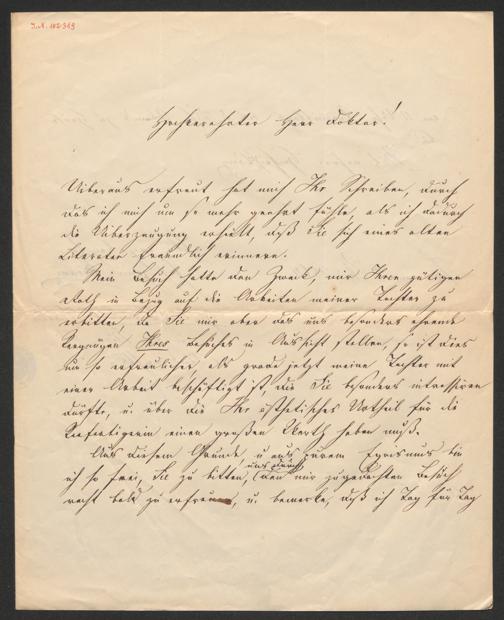 I.N. 102.369
Hochverehrter Herr Doktor!
Überaus erfreut hat mich Ihr Schreiben, durch
das ich mich um so mehr geehrt fühle, als ich dadurch
die Überzeugung erhielt, daß Sie sich eines alten
Literaten freundlich erinnern.
Mein Besuch hatte den Zweck, mir Ihren gütigen
Rath in Bezug auf die Arbeiten meiner Tochter zu
erbitten, da Sie mir aber das uns besonders ehrende
Vergnügen Ihres Besuches in Aussicht stellen, so ist dies
um so erfreulicher, als grade jetzt meine Tochter mit
einer Arbeit beschäftigt ist, die Sie besonders intressiren
dürfte, u. über die Ihr ästhetisches Urtheil für die
Verfertigerin einen großen Werth haben muß.
Aus diesem Grunde, u aus purem Egoismus bin
ich so frei, Sie zu bitten, uns durch den mir zugedachten Besuch
recht bald zu erfreuen, u. bemerke, daß ich Tag für Tag